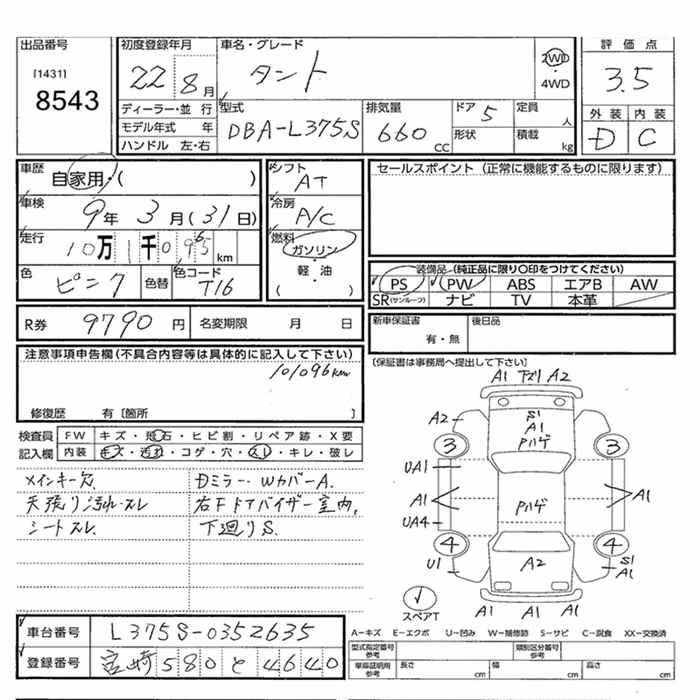 出品番号
[1431]
8543
初度登録年月
22年8月
車名・グレード
タント
2WD
・
4WD
評価点
3.5
外装 内装
D C
ディーラー・並行
モデル年式 年
ハンドル 左・右
型式
DBA-L375S
排気量
660 CC
ドア 5
形状
定員 人
積載 kg
車歴
自家用・( )
車検
9年 3月(31日)
走行
km
色
ピンク
色替
色コード
T16
シフト
AT
冷房
A/C
燃料
ガソリン
・
軽油
・
( )
セールスポイント (正常に機能するものに限ります)
装備品 (純正品に限り〇印をつけてください)
PS PW ABS エアB AW
SR(サンルーフ) ナビ TV 本革
R券 9790 円 名変期限 月 日
新車保証書
有・無
後日品
[保証書は事務局へ提出して下さい]
注意事項申告欄(不具合内容等は具体的に記入して下さい)
101096km
修復歴 有 [箇所 ]
検査員
記入欄
FW キズ・飛石・ヒビ割・リペア跡・X要
内装 キズ・汚れ・コゲ・穴・スレ・キレ・破レ
メインキー欠
天張り汚れ・スレ
シートスレ
Dミラー・WカバーA.
右Fドアバイザー室内.
下廻りS.
A1 下ズリ A2
A2
S1
A1
Pハゲ
3 3
UA1
A1
UA4
Pハゲ
A1
4 4
U1
A2
S1
A1
スペアT
A1 A1 A1
A-キズ E-エクボ U-凹み W-補修跡 S-サビ C-腐食 XX-交換済
車台番号 L375S-0352635
登録番号 宮崎 580 と 4640
型式指定番号
参考
類別区分番号
参考
車庫証明用
参考
長さ cm
幅 cm
高さ cm